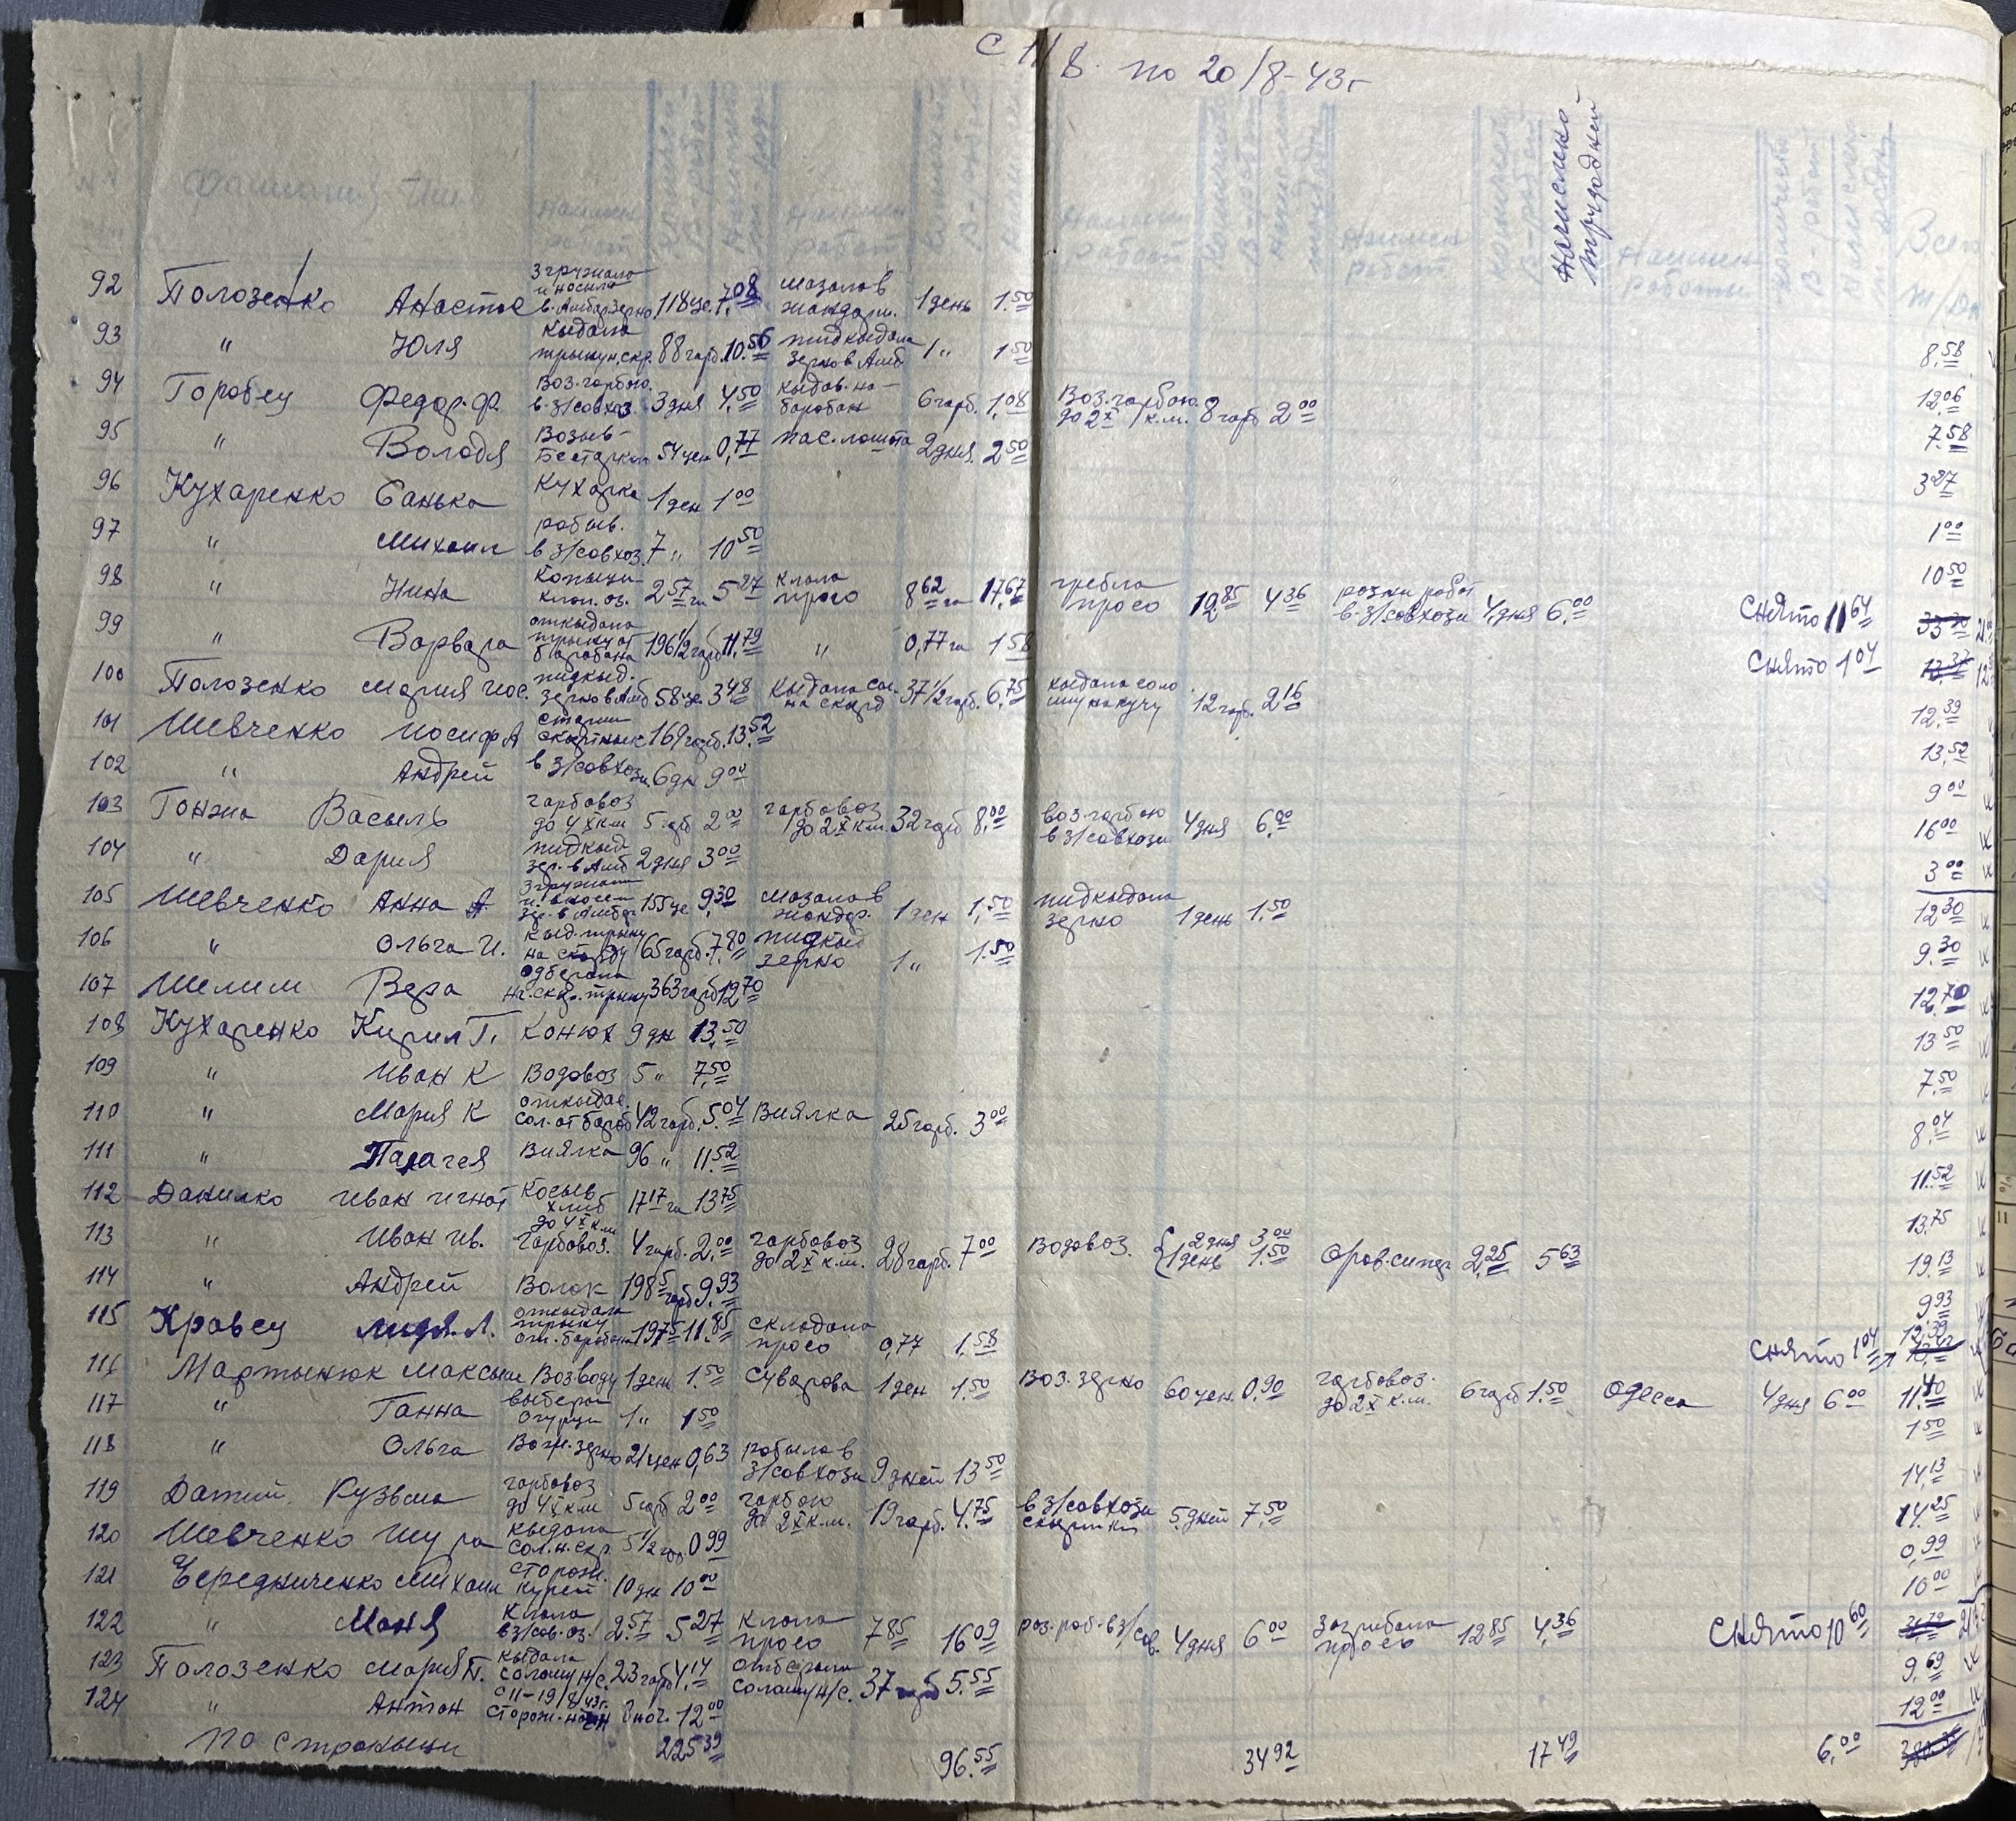 С 11/8 по 20/8-43г
Фамилия Имя Наимен работ Наимен работ Наимен работ Наимен работ Начислено трудодней Наимен работы Всего т/дн
92 Полозенко Анастас згружала и носила в амбар зерно 118 це. 7,08 мазала в жандарм. 1 день 1.50 8,58
93 " Юля кыдала трыну н. скр. 88 гарб. 10.56 пидкыдала зерно в Амб 1 " 1 50 12,06
94 Горобец Федор. Ф. Воз. гарбою в з/совхоз 3 дня 4,50 кыдав. на барабан 6 гарб. 1,08 Воз. гарбою до 2х к.м. 8 гарб 2 00 7.58
95 " Володя Возыв- 54 цен 0,77 пас. лошата 2 дня. 2 50 3 27
96 Кухаренко Санька Кухарка 1 ден 1 00 1 00
97 " Михаил робыв. в з/совхоз 7 " 10 50 10 50
98 " Нина Копыци- клал. оз. 2 57 га 5 27 Клала просо 8 62 га 17,67 гребла просо 12,85 4 36 розни работ в з/совхози 4 дня 6,00 Снято 11 64 33 30
99 " Варвара откыдала трыну от барабана 196 1/2 гарб 11,79 " 0,77 га 1 58 Снято 1 04 13,37
100 Полозенко Мария Иос. пидкыд. зерно в Амб 58 це. 3 48 кыдала сол. на скырд 37 1/2 гарб. 6,75 кыдала соло му на кучу 12 гарб. 2 16 12,39
101 Шевченко Иосиф А старш скыртнык 169 гарб. 13.52 13,52
102 " Андрей в з/совхози 6 дн 9 00 9 00
103 Гонжа Васыль гарбовоз до 4х км 5 гарб 2 00 гарбовоз до 2х к.м. 32 гарб 8,00 воз. гарбою в з/совхози 4 дня 6,00 16 00
104 " Дария пидкыд. зер. в Амб 2 дня 3 00 3 00
105 Шевченко Анна А згружала и вносил зер. в Амбар 155 це 9,30 мазала в жандар. 1 ден 1,50 пидкыдала зерно 1 день 1,50 12 30
106 " Ольга И. кыд. трыну на скырду 65 гарб. 7,80 пидкыд зерно 1 " 1.50 9.30
107 Шелим Вера одберала на скыр. трыну 363 гарб 12,70 12,70
108 Кухаренко Кирил Г. Конюх 9 дн 13,50 13 50
109 " Иван К Водовоз 5 " 7,50 7,50
110 " Мария К откыдае. сол. от бараб 42 гарб. 5.04 Виялка 25 гарб. 3 00 8,04
111 " Палагея Виялка 96 " 11.52 11.52
112 Данилко Иван Игнат Косыв хлиб 17 17 га 13 75 13.75
113 " Иван Ив. до 4х км гарбовоз. 4 гарб. 2,00 гарбовоз до 2х к.м. 28 гарб. 7 00 Водовоз. { 2 дня 3.00 1 день 1.50 2,25 5 63 19.13
114 " Андрей Волок 198 5 гарб 9,93 9 93
115 Кравец Лидя. Л. откыдала трыну от. барабана 197 5 11.85 складала просо 0,77 1,58 Снято 1 04 12,39
116 Мартынюк Максым Воз воду 1 ден 1.50 Суварова 1 ден 1.50 Воз. зерно 60 цен. 0,90 гарбовоз. до 2х к.м. 6 гарб 1.50 Одесса 4 дня 6 00 11,40
117 " Ганна выбера огурци 1 " 1 50 1 50
118 " Ольга зерно 21 цен 0,63 робыла в з/совхози 9 дней 13 50 14,13
119 Датий Кузьма гарбовоз до 4х км 5 гарб 2 00 гарбою до 2х к.м. 19 гарб. 4.75 в з/совхози 5. дней 7,50 14.25
120 Шевченко Шура кыдала сол. н. скр. 5 1/2 гар. 0 99 0,99
121 Чередниченко Михаил сторож. курей 10 дн 10 00 10 00
122 " Маня Клала в з/сов. оз. 2.57 5 27 клала просо 7 85 16 09 роз. роб. в з/сов. 4 дня 6 00 загрибала просо 12 85 4,36 Снято 10 60
123 Полозенко Мария П. кыдала солому н/с. 23 гарб 4,14 отберала солому н/с. 37 гарб 5.55 9,69
124 " Антон с 11-19/8 43г. сторож. ночн 8 ноч. 12 00 12 00
по страныци 225 39 96.55 34 92 17 49 6,00